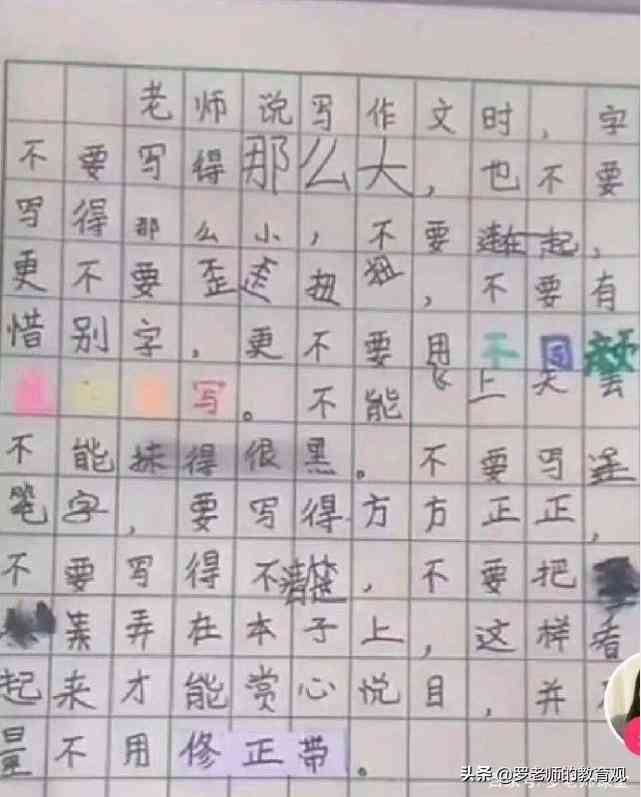 老师说写作文时，字
不要写得那么大，也不要
写得那么小，不要连在一起，
更不要歪歪扭扭，不要有
惜别字，更不要用不同颜
写。不能飞上天去
不能抹得很黑。不要写连
笔字，要写得方方正正，
不要写得不清楚，不要把
弄在本子上，这样看
起来才能赏心悦目，并
量不用修正带。
头条 @罗老师的教育观